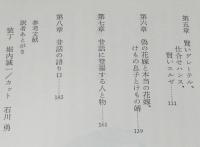 第五章　賢いグレーテル、
仕合せハンス、
賢いエルゼ　111
第六章　偽の花嫁と本当の花嫁、
けもの息子とけもの婿　139
第七章　昔話に登場する人と物　161
第八章　昔話の語り口　183
参考文献
訳者あとがき
装丁　堀内誠一／カット　石川勇